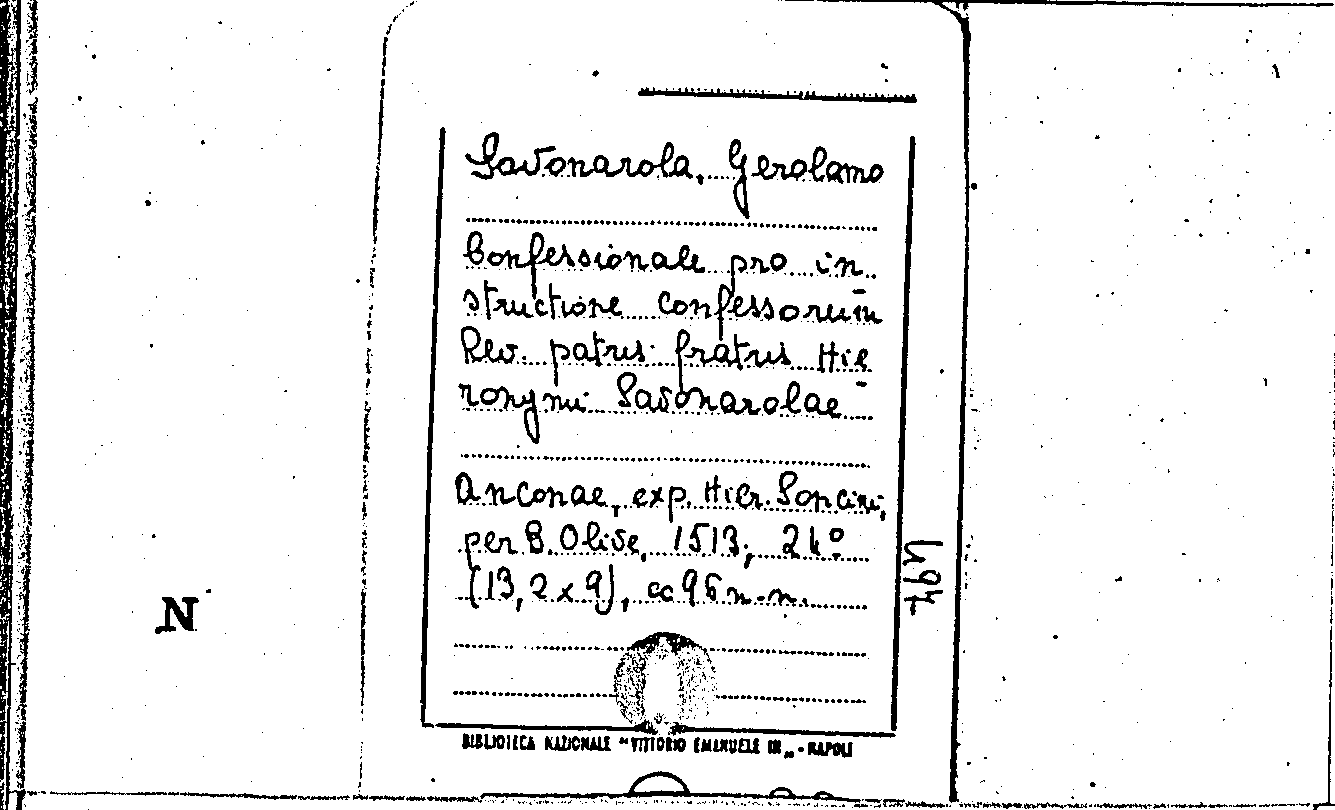 Savonarola, Gerolamo
Confessionale pro in
structione confessorum
Rev. patris fratris Hie
ronymi Savonarolae
Anconae, exp. Hier. Soncini,
per B. Olive, 1513; 24º
(13,2 x 9), cc 96 n.n.
494
N
BIBLIOTECA NAZIONALE "VITTORIO EMANUELE III„ - NAPOLI